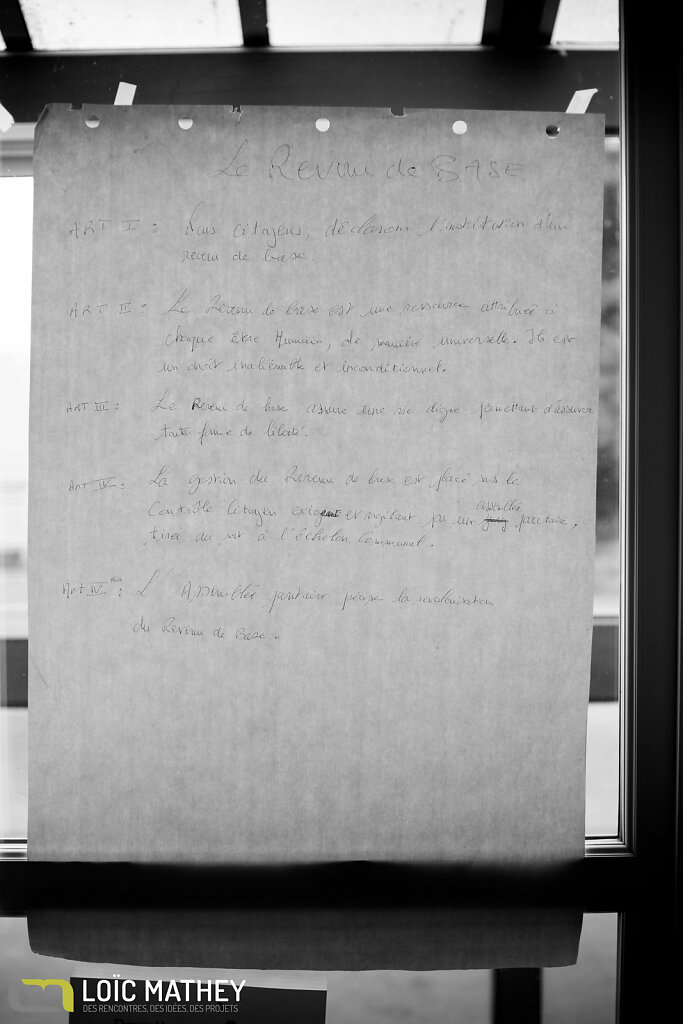 Le Revenu de BASE
ART I : Nous citoyens, déclarons l'institution d'un
revenu de base.
ART II : Le Revenu de base est une ressource attribuée à
chaque être Humain, de manière universelle. Il est
un droit inaliénable et inconditionnel.
ART III : Le Revenu de base assure une vie digne permettant d'assurer
toute forme de liberté.
Art IV : La gestion du Revenu de base est placé sous le
Contrôle Citoyen exigeant et vigilant par une assemblée paritaire,
tirée au sort à l'échelon Communal.
Art IV bis : L'Assemblée paritaire précise la revalorisation
du Revenu de Base.
LOÏC MATHEY
DES RENCONTRES, DES IDÉES, DES PROJETS